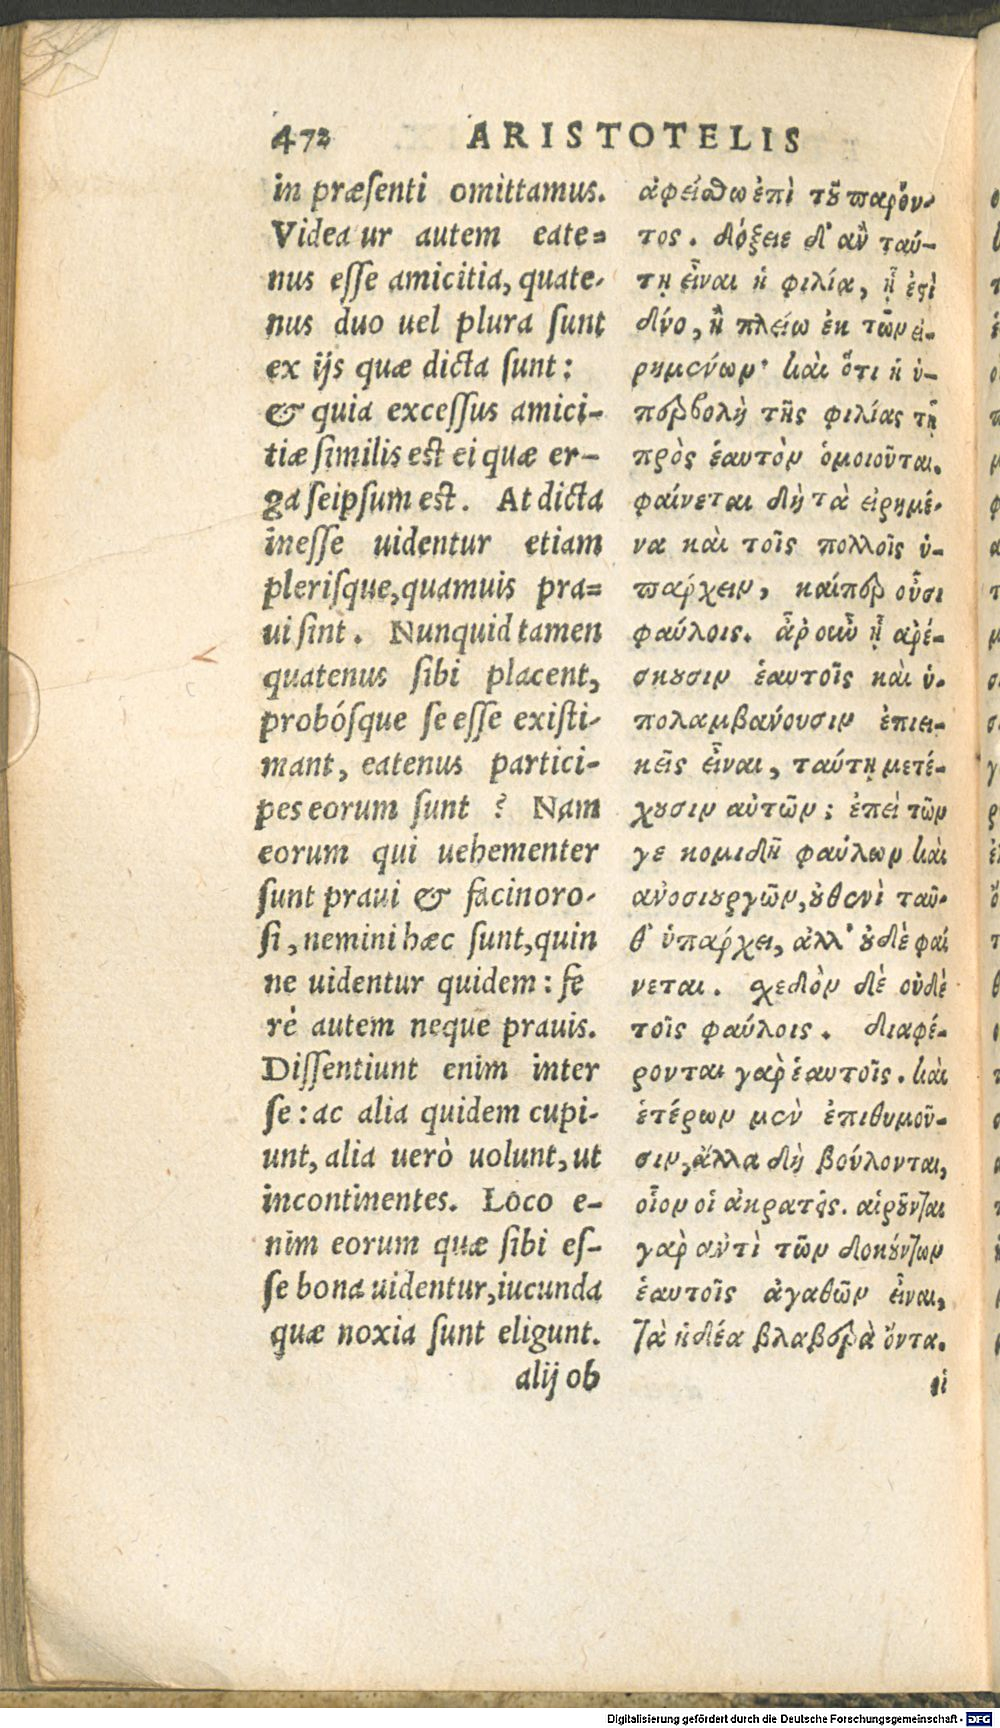 472 ARISTOTELIS
in præſenti omittamus.
Videa ur autem eate=
nus eſſe amicitia, quate-
nus duo uel plura ſunt
ex ijs quæ dicta ſunt:
& quia exceſſus amici-
tiæ ſimilis est ei quæ er-
ga ſeipſum est. At dicta
ineſſe uidentur etiam
pleriſque, quamuis pra=
ui ſint. Nunquid tamen
quatenus ſibi placent,
probóſque ſe eſſe exiſti-
mant, eatenus partici-
pes eorum ſunt? Nam
eorum qui uehementer
ſunt praui & facinoro-
ſi, nemini hæc ſunt, quin
ne uidentur quidem: fe
rè autem neque prauis.
Diſſentiunt enim inter
ſe: ac alia quidem cupi-
unt, alia uerò uolunt, ut
incontinentes. Loco e-
nim eorum quæ ſibi eſ-
ſe bona uidentur, iucunda
quæ noxia ſunt eligunt.
alij ob
ἀφείσθω ἐπὶ τοῦ παρόν-
τος. δόξειε δ' ἂν ταύ-
τῃ εἶναι ἡ φιλία, ᾗ ἐστὶ
δύο, ἢ πλείω ἐκ τῶν εἰ-
ρημένων· καὶ ὅτι ἡ ὑ-
περβολὴ τῆς φιλίας τῇ
πρὸς ἑαυτὸν ὁμοιοῦται.
φαίνεται δὴ τὰ εἰρημέ-
να καὶ τοῖς πολλοῖς ὑ-
πάρχειν, καίπερ οὖσι
φαύλοις. ἆρ οὖν ᾗ ἀρέ-
σκουσιν ἑαυτοῖς καὶ ὑ-
πολαμβάνουσιν ἐπιει-
κεῖς εἶναι, ταύτῃ μετέ-
χουσιν αὐτῶν; ἐπεὶ τῶν
γε κομιδῇ φαύλων καὶ
ἀνοσιουργῶν, οὐθενὶ ταῦ-
θ' ὑπάρχει, ἀλλ' οὐδὲ φαί
νεται. σχεδὸν δὲ οὐδὲ
τοῖς φαύλοις. διαφέ-
ρονται γὰρ ἑαυτοῖς. καὶ
ἑτέρων μὲν ἐπιθυμοῦ-
σιν, ἄλλα δὴ βούλονται,
οἷον οἱ ἀκρατεῖς. αἱροῦνται
γὰρ ἀντὶ τῶν δοκούντων
ἑαυτοῖς ἀγαθῶν εἶναι,
τὰ ἡδέα βλαβερὰ ὄντα.
οἱ
Digitalisierung gefördert durch die Deutsche Forschungsgemeinschaft - DFG